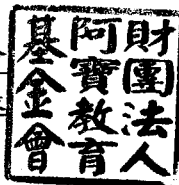 財團法人
阿寶教育
基金會